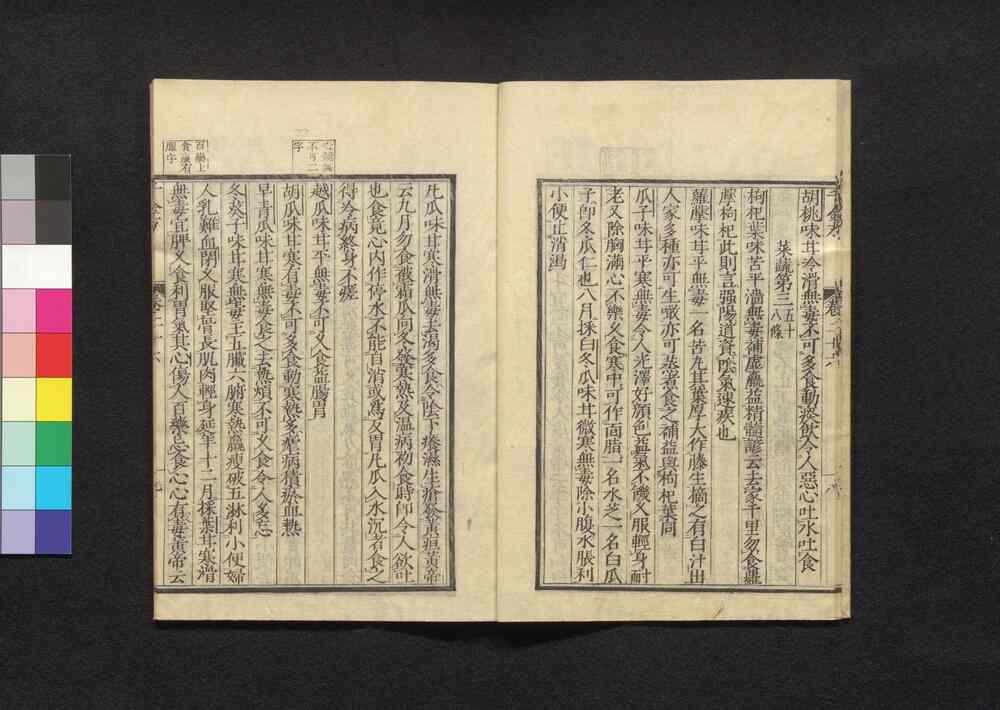 胡桃味甘冷滑無毒不可多食動痰飲令人惡心吐水吐食
菜蔬第三五十八條
枸杞葉味苦平濇無毒補虛羸益精髓諺云去家千里勿食蘿
摩枸杞此則言强陽道資陰氣速疾也
蘿摩味甘平無毒一名苦丸其葉厚大作藤生摘之有白汁出
人家多種亦可生啖亦可蒸煮食之補益與枸杞葉同
瓜子味甘平寒無毒令人光澤好顏色益氣不饑久服輕身耐
老又除胸滿心不樂久食寒中可作面脂一名水芝一名白瓜
子即冬瓜仁也八月採白冬瓜味甘微寒無毒除小腹水脹利
小便止消渴
凡瓜味甘寒滑無毒去渴多食令陰下癢濕生瘡發黃疸黃帝
云九月勿食被霜瓜向冬發寒熱及溫病初食時即令人欲吐
也食竟心內作停水不能自消或爲反胃凡瓜入水沉者食之
得冷病終身不瘥
越瓜味甘平無毒不可久食益腸胃
胡瓜味甘寒有毒不可多食動寒熱多瘧病積瘀血熱
早青瓜味甘寒無毒食之去熱煩不可久食令人多忘
冬葵子味甘寒無毒主五臟六腑寒熱羸瘦破五淋利小便婦
人乳難血閉久服堅骨長肌肉輕身延年十二月採葉甘寒滑
無毒宜脾久食利胃氣其心傷人百藥忌食心心有毒黃帝云
不可二
字
百藥上
食